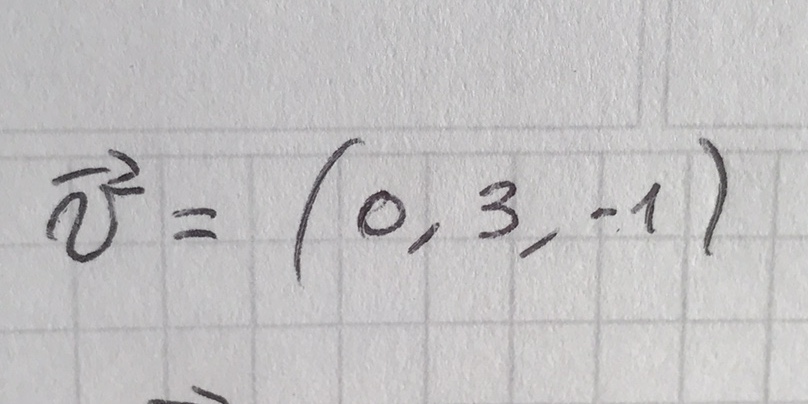 v⃗ = (0, 3, -1)